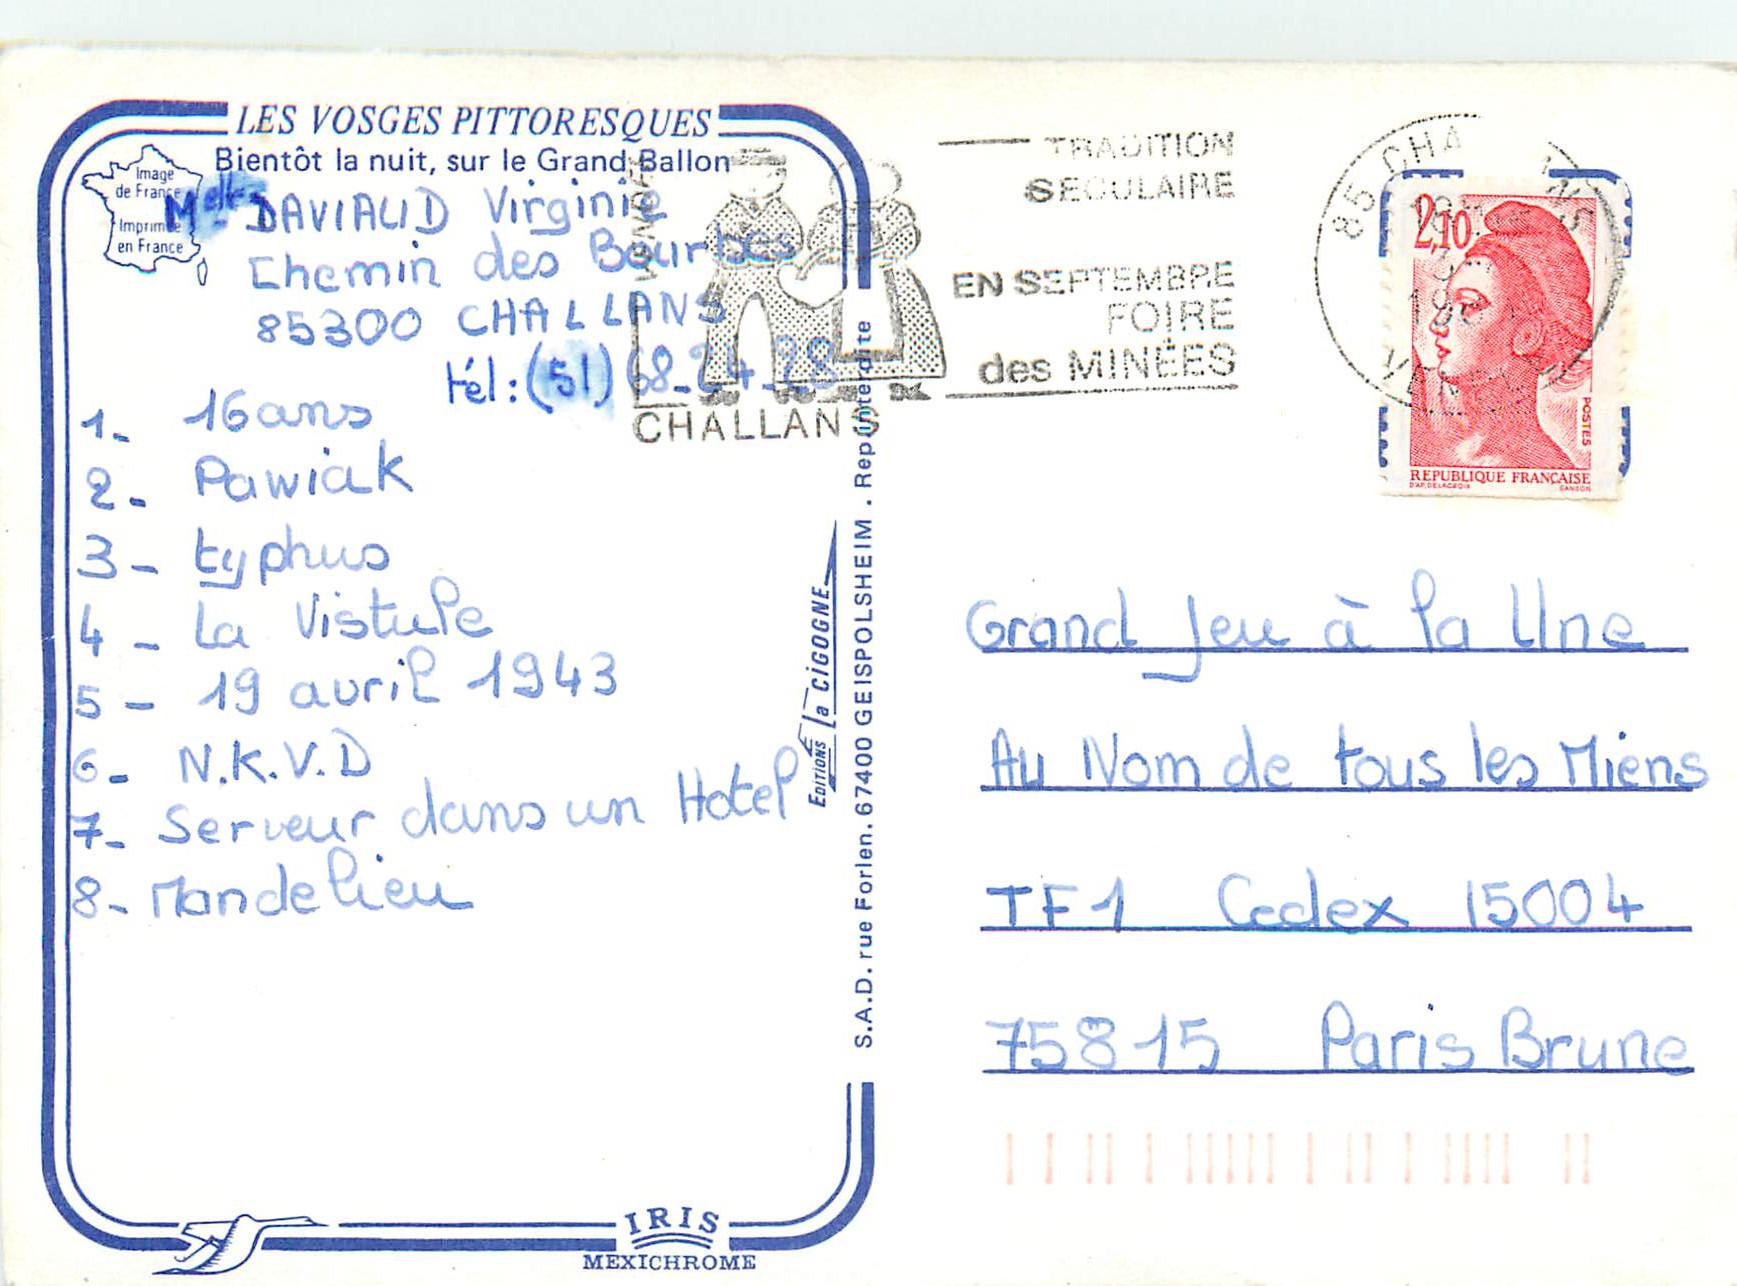 LES VOSGES PITTORESQUES
Bientôt la nuit, sur le Grand Ballon
Image
de France
Imprimée
en France
Melle DAVIAUD Virginie
Chemin des Bourbes
85300 CHALLANS
tél : (51) 68_24_28
1_ 16 ans
2_ Pawiak
3_ typhus
4_ La Vistule
5_ 19 avril 1943
6_ N.K.V.D
7_ Serveur dans un Hotel
8_ Mandelieu
EDITIONS la CIGOGNE
S.A.D. rue Forlen. 67400 GEISPOLSHEIM . Rep. interdite
IRIS
MEXICHROME
CHALLANS
TRADITION
SECULAIRE
EN SEPTEMBRE
FOIRE
des MINÉES
85 CHA NS
2,10
POSTES
REPUBLIQUE FRANÇAISE
D'AP. DELACROIX GANDON
Grand Jeu à la Une
Au Nom de tous les Miens
TF1 Cedex 15004
75815 Paris Brune